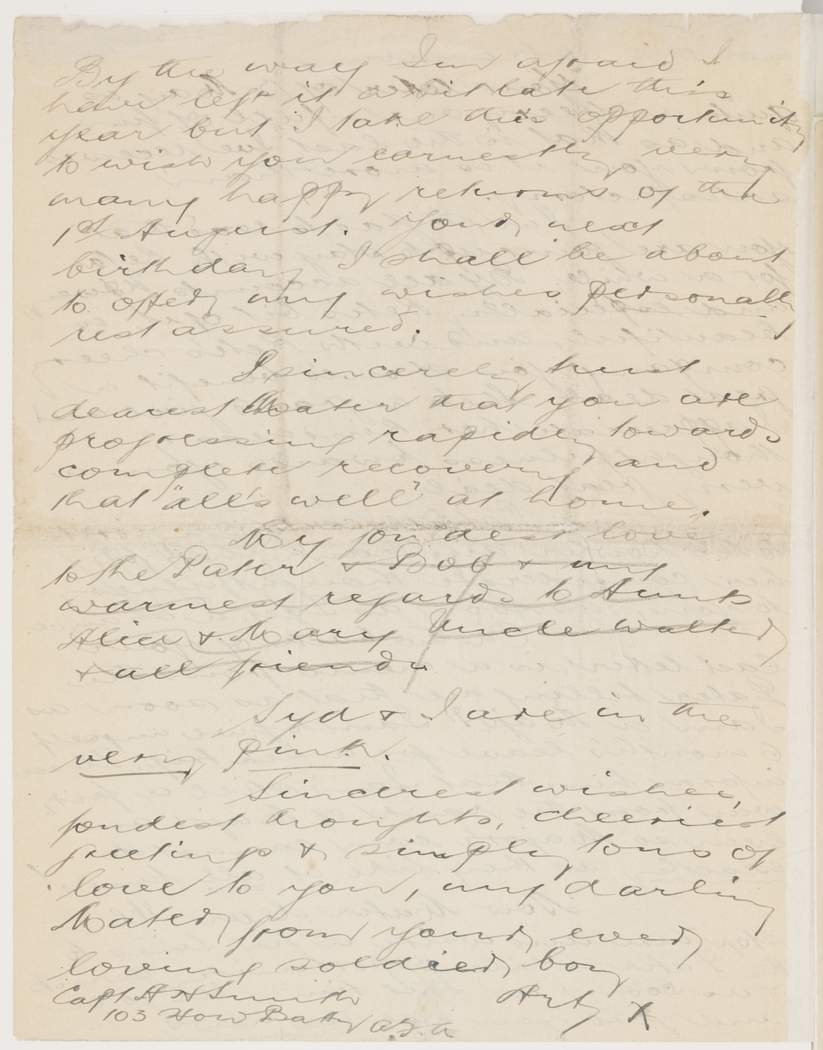 By the way I'm afraid I
have left it a bit late this
year but I take this opportunity
to wish you earnestly very
many happy returns of the
1st August. Your next
birthday I shall be about
to offer my wishes personally
rest assured.
I sincerely trust
dearest Mater that you are
progressing rapidly towards
complete recovery and
that "all's well" at home.
My fondest love
to the Pater & Bob & my
warmest regards to Aunts
Alice & Mary Uncle Walter
& all friends.
Syd & I are in the
very pink.
Sincerest wishes,
fondest thoughts, cheeriest
greetings & simply tons of
love to you, my darling
Mater from your ever
loving soldier boy
Arty X
Capt A H Smith
103 How Batty